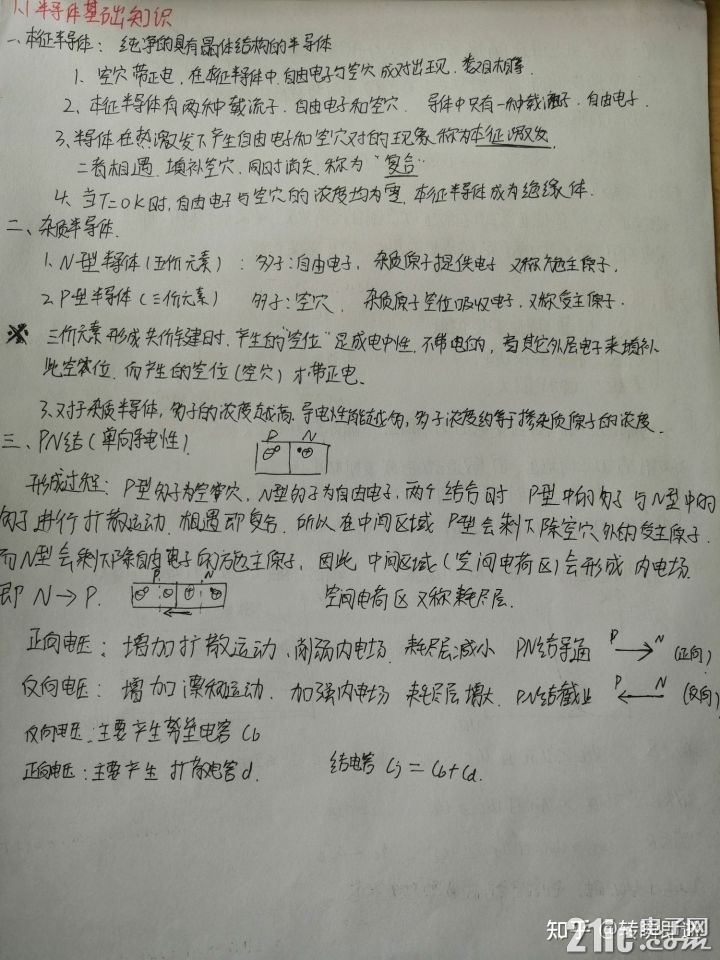 1.1 半导体基础知识
一、本征半导体：纯净的具有晶体结构的半导体
1、空穴带正电，在本征半导体中，自由电子与空穴成对出现，数目相等.
2、本征半导体有两种载流子，自由电子和空穴. 导体中只有一种载流子，自由电子.
3、半导体在热激发下产生自由电子和空穴对的现象称为本征激发.
二者相遇，填补空穴，同时消失，称为"复合"
4、当T=0K时，自由电子与空穴的浓度均为零，本征半导体成为绝缘体.
二、杂质半导体.
1、N型半导体（五价元素）：多子：自由电子，杂质原子提供电子 又称施主原子.
2、P型半导体（三价元素） 多子：空穴. 杂质原子空位吸收电子，又称受主原子.
※ 三价元素形成共价键时，产生的"空位"是成电中性，不带电的，当其它外层电子来填补
此空位，而产生的空位（空穴）才带正电、
3、对于杂质半导体，多子的浓度越高，导电性能越强，多子浓度约等于掺杂质原子的浓度.
三、PN结（单向导电性）. P N
形成过程：P型多子为空穴，N型多子为自由电子，两个结合时 P型中的多子与N型中的
多子进行扩散运动，相遇即复合，所以在中间区域 P型会剩下除空穴外的受主原子.
而N型会剩下除自由电子的施主原子，因此 中间区域（空间电荷区）会形成 内电场
即 N→P. P N 空间电荷区又称耗尽层.
正向电压：增加扩散运动、削弱内电场 耗尽层减小 PN结导通 P → N (正向)
反向电压：增加漂移运动. 加强内电场 耗尽层增大. PN结截止 P ← N (反向)
反向电压：主要产生势垒电容 Cb
正向电压：主要产生 扩散电容d. 结电容 Cj = Cb+Cd.
知乎 @转
21ic.com 电子网